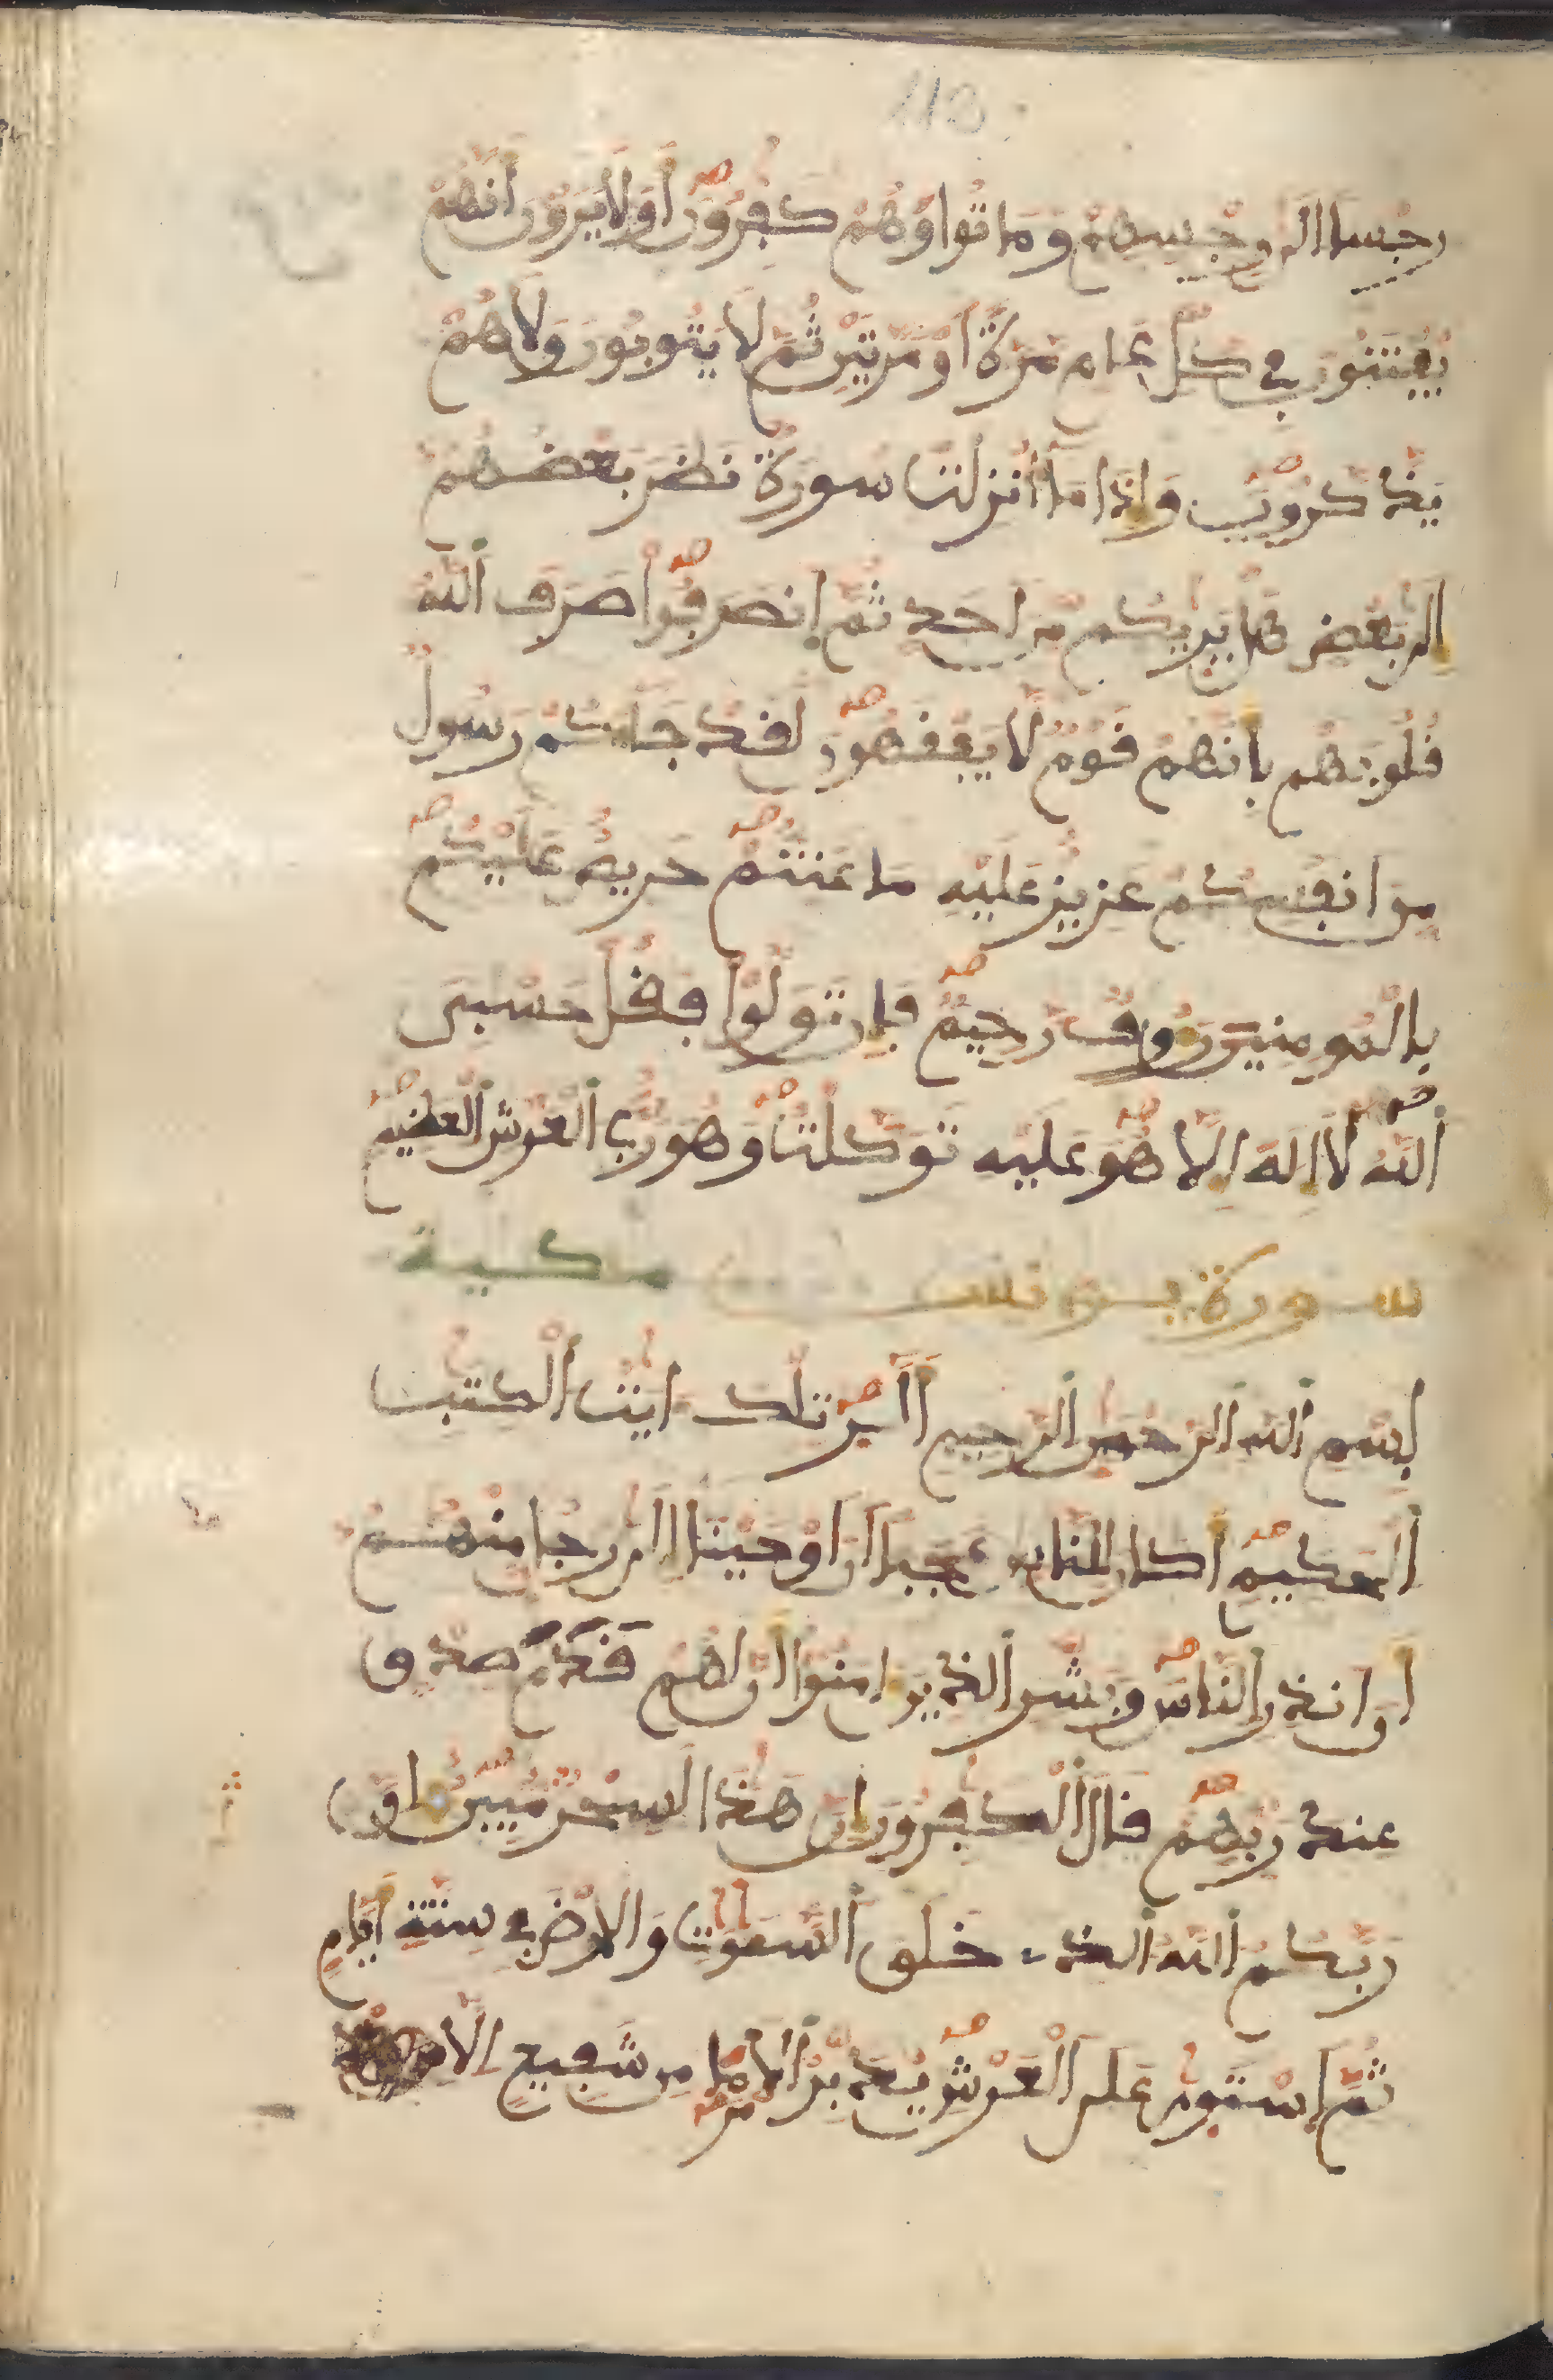 113
رجسا الى رجسهم وماتوا وهم كفرون اولا يرون انهم
يفتنون في كل عام مرة او مرتين ثم لا يتوبون ولا هم
يذكرون واذا ما انزلت سورة نظر بعضهم
الى بعض هل يريكم من احد ثم انصرفوا صرف الله
قلوبهم بانهم قوم لا يفقهون لقد جاكم رسول
من انفسكم عزيز عليه ما عنتم حريص عليكم
بالمومنين روف رحيم فان تولوا فقل حسبي
الله لا اله الا هو عليه توكلت وهو رب العرش العظيم
سورة يونس مكية
بسم الله الرحمن الرحيم الر تلك ايت الكتب
الحكيم اكان للناس عجبا ان اوحينا الى رجل منهم
ان انذر الناس وبشر الذين امنوا ان لهم قدم صدق
عند ربهم قال الكفرون ان هذا لسحر مبين ان
ربكم الله الذي خلق السموت والارض في ستة ايام
ثم استوى على العرش يدبر الامر ما من شفيع الا من